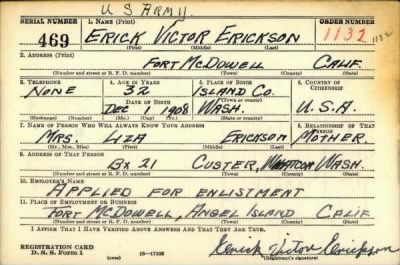 U S ARMY.
SERIAL NUMBER 1. NAME (Print) ORDER NUMBER
469 ERICK VICTOR ERICKSON 1132 1132
(First) (Middle) (Last)
2. ADDRESS (Print)
FORT MCDOWELL CALIF.
(Number and street or R. F. D. number) (Town) (County) (State)
3. TELEPHONE 4. AGE IN YEARS 5. PLACE OF BIRTH 6. COUNTRY OF CITIZENSHIP
NONE 32 ISLAND CO.
DATE OF BIRTH (Town or county)
DEC 1 1908 WASH. U.S.A.
(Exchange) (Number) (Mo.) (Day) (Yr.) (State or country)
7. NAME OF PERSON WHO WILL ALWAYS KNOW YOUR ADDRESS 8. RELATIONSHIP OF THAT PERSON
MRS. LIZA ERICKSON MOTHER.
(Mr., Mrs., Miss) (First) (Middle) (Last)
9. ADDRESS OF THAT PERSON
BX 21 CUSTER, WHATCOM WASH.
(Number and street or R. F. D. number) (Town) (County) (State)
10. EMPLOYER'S NAME
APPLIED FOR ENLISTMENT
11. PLACE OF EMPLOYMENT OR BUSINESS
FORT MCDOWELL, ANGEL ISLAND CALIF
(Number and street or R. F. D. number) (Town) (County) (State)
I AFFIRM THAT I HAVE VERIFIED ABOVE ANSWERS AND THAT THEY ARE TRUE.
REGISTRATION CARD
D. S. S. Form 1 (over) Erick Victor Erickson
(Registrant's signature)